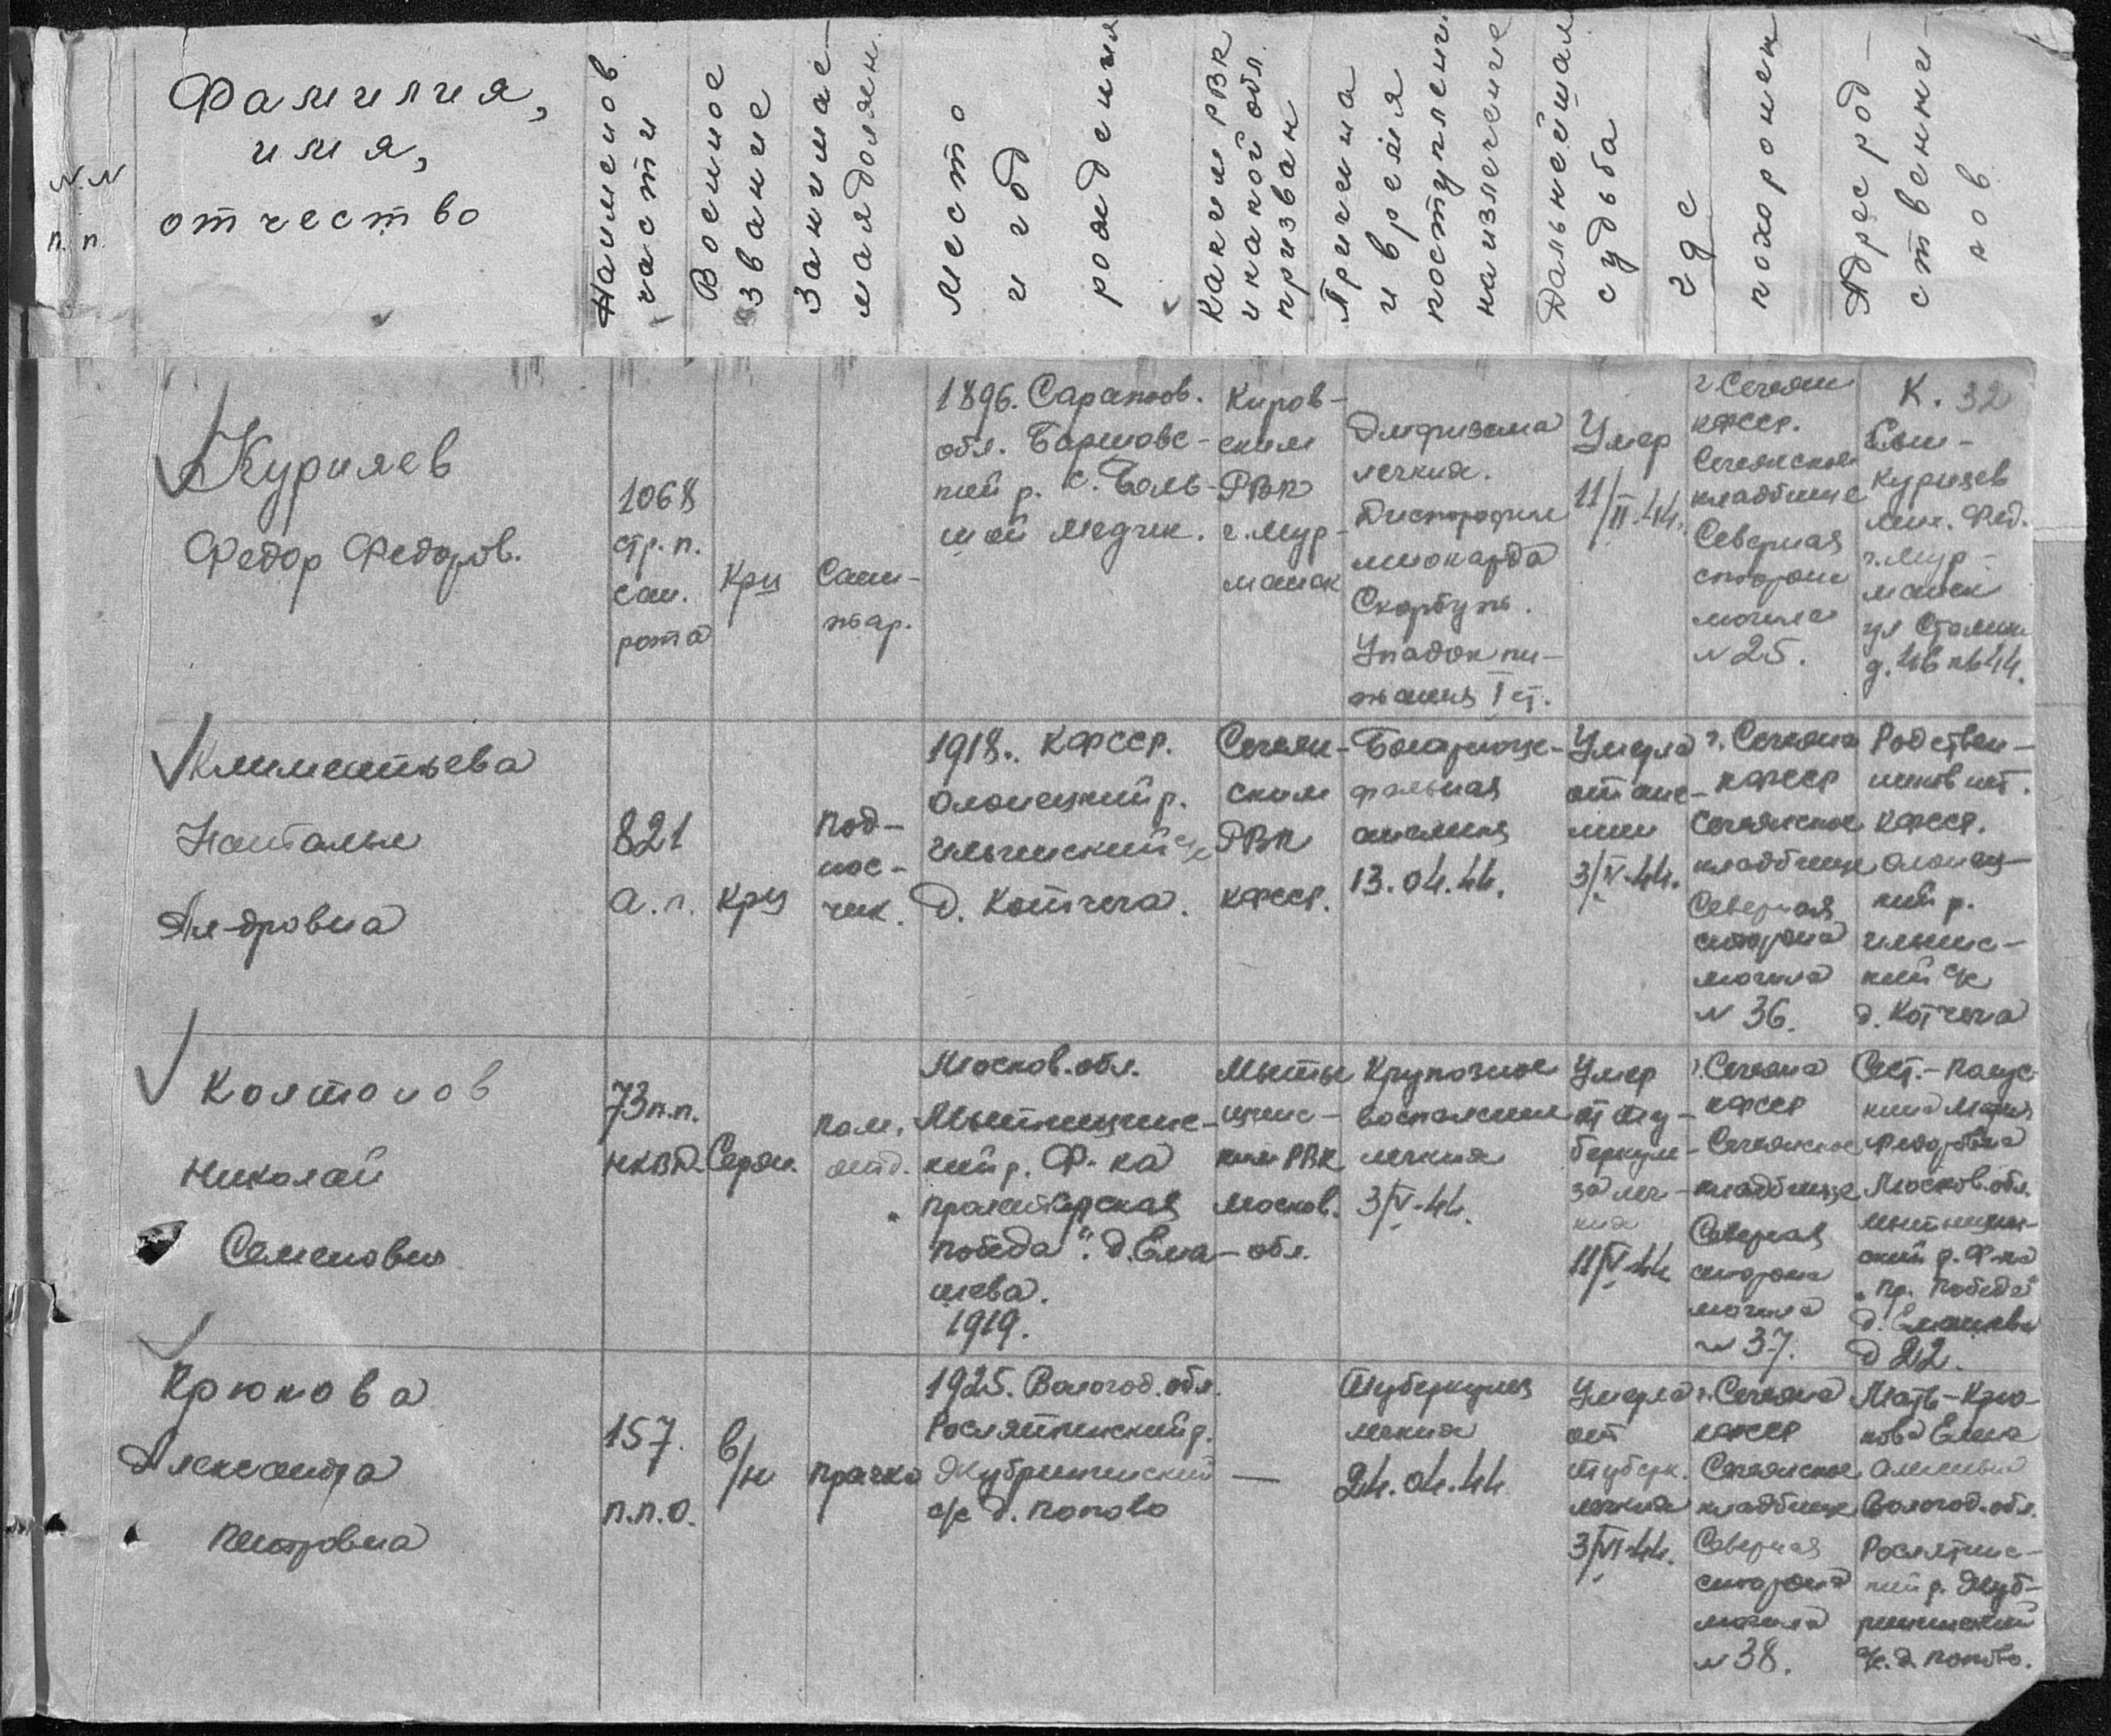 N.N
п.п.
Фамилия,
имя,
отчество
Наименов
части
Военное
звание
Занимае-
мая должн.
Место
и год
рождения
Каким РВК
и какой обл.
призван
Причина
и время
поступлен
на излечение
Дальнейшая
судьба
где
похоронен
Адрес род-
ственни-
ков
Куриляев
Федор Федоров.
1068
стр. п.
сан.
рота
Крц
Сани-
тар.
1896. Саратов.
обл.
р. с. Боль-
шой Медчек.
Киров-
ским
РВК
г. Мур-
манск
Эмфизема
легких.
Дистрофия
миокарда
Скорбуть.
Упадок пи-
тания I ст.
Умер
11/II-44.
г. Сегежи
КФССР.
Сегежское
кладбище
Северная
сторона
могила
N 25.
К. 32
Сын-
мих. Фед.
г. Мур-
манск
ул Сталина
д. 46 кв 44.
Климентьева
Наталья
Ал-дровна
821
а. п.
Крц
Под-
нос-
чик.
1918. КФССР.
Олонецкий р.
Ильинский с/с
д. Котчега.
Сегеж-
ским
РВК
КФССР.
анемия
13.04.44.
Умерла
от ане-
мии
3/V-44.
г. Сегежа
КФССР
Сегежское
кладбище
Северная
сторона
могила
N 36.
Родствен-
ников нет.
КФССР.
Олонец-
кий р.
Ильинс-
кий с/с
д. Котчега
Колтонов
Николай
Семенович
73 п.п.
НКВД.
Серж.
пом.
отд.
Москов. обл.
Мытищинс-
кий р. Ф-ка
„Пролетарская
победа". д. Елма-
шева.
1919.
Мыти
щинс-
ким РВК
Москов.
обл.
Крупозное
воспаление
легких
3/V-44.
Умер
от ту-
беркуле-
за лег-
ких
11/V-44
г. Сегежа
КФССР
Сегежское
кладбище
Северная
сторона
могила
N 37.
Сест.-
Мария
Федоровна
Москов. обл.
Мытищин-
ский р. Ф-ка
„Пр. победа"
д 22.
Крюкова
Александра
Петровна
157.
п.п.о.
в/н
прачка
1925. Вологод. обл.
Рослятинский р.
Жубрининский
с/с д. Попово
—
Туберкулез
легких
24.04.44
Умерла
от
туберк.
легких
3/VI-44.
г. Сегежа
КФССР
Сегежское
кладбище
Северная
сторона
могила
N 38.
Мать-Крю-
кова Елена
Вологод. обл.
Рослятинс-
кий р. Жуб-
рининский
с/с. д. Попово.